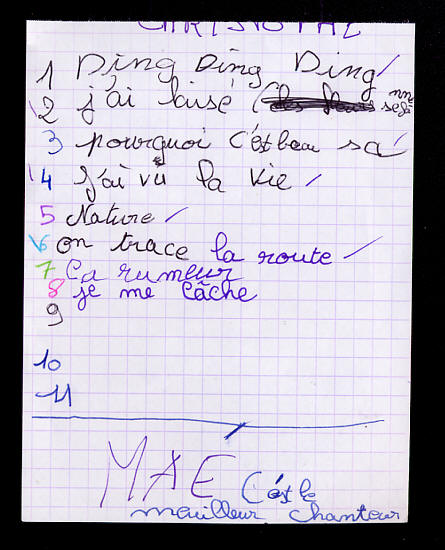 CHRISTOPHE
1 Ding Ding Ding /
2 j'ai laisé (
3 pourquoi c'ést beau sa /
4 J'ai vu la vie /
5 Nature /
6 on trace la route /
7 ça rumeur
8 je me lâche
9
10
11
MAE C'ést le
meuilleur chanteur